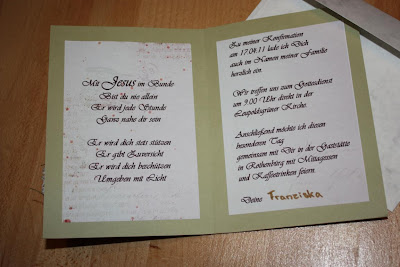 Mit Jesus im Bunde
Bist du nie allein
Er wird jede Stunde
Ganz nahe dir sein
Er wird dich stets stützen
Er gibt Zuversicht
Er wird dich beschützen
Umgeben mit Licht
Zu meiner Konfirmation
am 17.04.11 lade ich Dich
auch im Namen meiner Familie
herzlich ein.
Wir treffen uns zum Gottesdienst
um 9.00 Uhr direkt in der
Leupoldsgrüner Kirche.
Anschließend möchte ich diesen
besonderen Tag
gemeinsam mit Dir in der Gaststätte
in Rothenbürg mit Mittagessen
und Kaffeetrinken feiern.
Deine Franziska